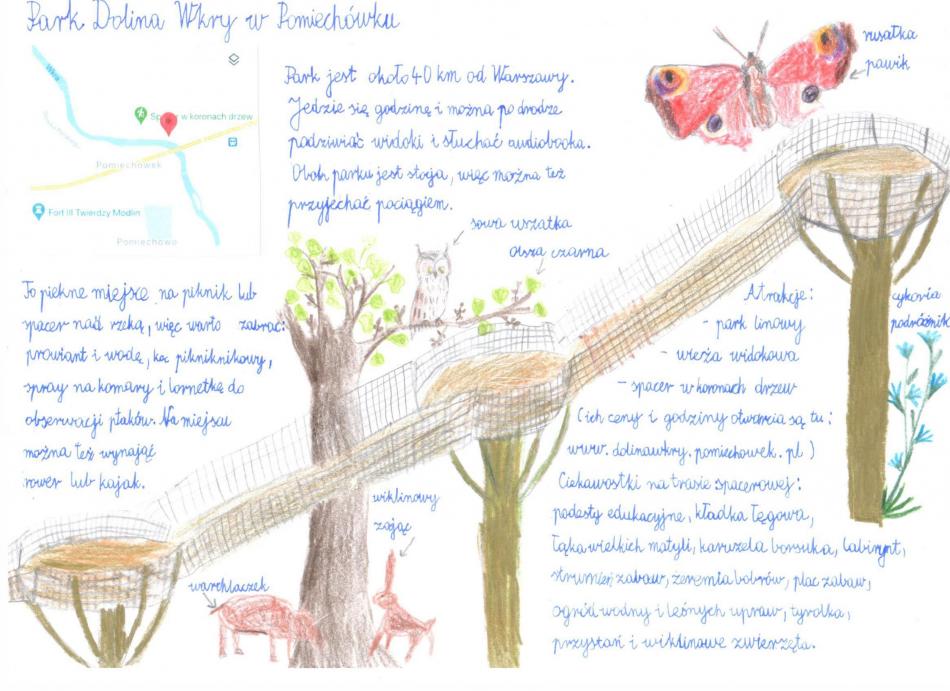 Park Dolina Wkry w Pomiechówku
Wkra
Spacer w koronach drzew
Pomiechówek
Fort III Twierdzy Modlin
Pomiechowo
Park jest około 40 km od Warszawy.
Jedzie się godzinę i można po drodze
podziwiać widoki i słuchać audiobooka.
Obok parku jest stacja, więc można też
przyjechać pociągiem.
rusałka
pawik
sowa uszatka
olsza czarna
To piękne miejsce na piknik lub
spacer nad rzeką, więc warto zabrać:
prowiant i wodę, koc piknikowy,
spray na komary i lornetkę do
obserwacji ptaków. Na miejscu
można też wynająć
rower lub kajak.
Atrakcje:
- park linowy
- wieża widokowa
- spacer w koronach drzew
(ich ceny i godziny otwarcia są tu:
www.dolinawkry.pomiechowek.pl)
Ciekawostki na trasie spacerowej:
podesty edukacyjne, kładka łęgowa,
łąka wielkich motyli, karuzela borsuka, labirynt,
strumień zabaw, żeremia bobrów, plac zabaw,
ogród wodny i leśnych upraw, tyrolka,
przystań i wiklinowe zwierzęta.
cykoria
podróżnik
wiklinowy
zając
warchlaczek